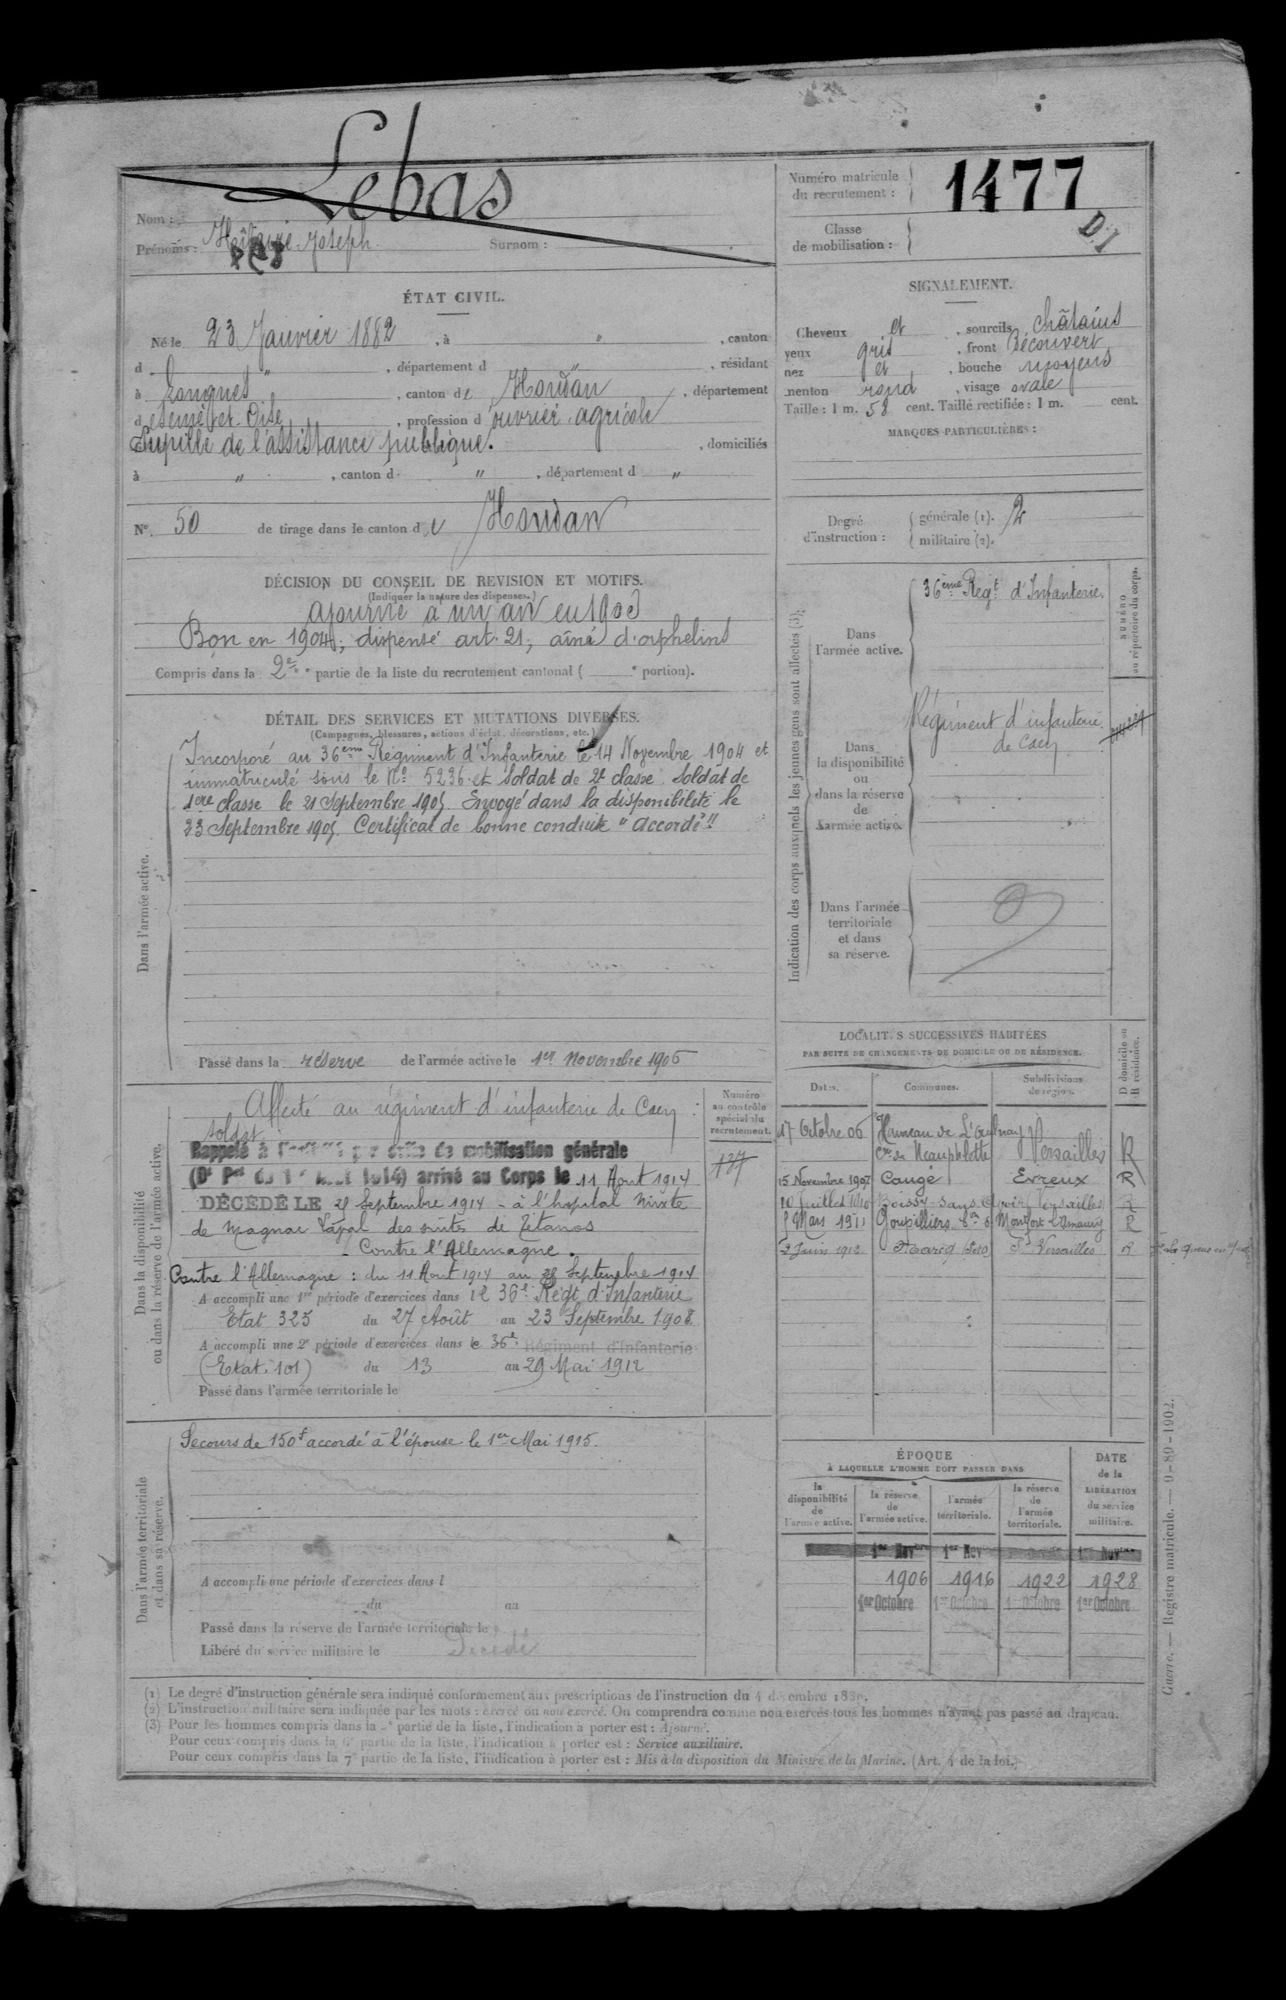 Nom : Lebas
Prénoms : Joseph Surnom :
Numéro matricule du recrutement : 1477
Classe de mobilisation :
D.I
ÉTAT CIVIL.
Né le 23 Janvier 1882, à " , canton
d " , département d " , résidant
à Longnes , canton de Houdan , département
de Seine et Oise , profession d'ouvrier agricole
Pupille de l'assistance publique. , domiciliés
à " , canton d " , département d "
N° 50 de tirage dans le canton de Houdan
SIGNALEMENT.
Cheveux et , sourcils châtains
yeux gris , front Découvert
nez et , bouche moyens
menton rond , visage ovale
Taille : 1 m. 58 cent. Taille rectifiée : 1 m. cent.
MARQUES PARTICULIÈRES :
Degré d'instruction : générale (1). 2
militaire (2).
DÉCISION DU CONSEIL DE REVISION ET MOTIFS.
(Indiquer la nature des dispenses.)
ajourné à un an en 1903
Bon en 1904, dispensé art. 21, aîné d'orphelins
Compris dans la 2e partie de la liste du recrutement cantonal ( e portion).
DÉTAIL DES SERVICES ET MUTATIONS DIVERSES.
(Campagnes, blessures, actions d'éclat, décorations, etc.)
Dans l'armée active.
Incorporé au 36ème Régiment d'Infanterie le 14 Novembre 1904 et
immatriculé sous le N° 5236 et soldat de 2e classe. Soldat de
1ère classe le 21 Septembre 1905. Envoyé dans la disponibilité le
23 Septembre 1905. Certificat de bonne conduite "accordé"
Passé dans la réserve de l'armée active le 1er novembre 1906
Indication des corps auxquels les jeunes gens sont affectés (3).
NUMÉRO au répertoire du corps.
Dans l'armée active.
36ème Régt d'Infanterie.
Dans la disponibilité ou dans la réserve de l'armée active.
Régiment d'infanterie
de Caen
Dans l'armée territoriale et dans sa réserve.
Dans la disponibilité ou dans la réserve de l'armée active.
Numéro au contrôle spécial du recrutement.
137
Affecté au régiment d'infanterie de Caen
soldat
Rappelé à l'activité par ordre de mobilisation générale
(Dt Pel du 1er Août 1914) arrivé au Corps le 11 Aout 1914
DÉCÉDÉ LE 28 Septembre 1914 - à l'hopital mixte
de Magnac Laval des suites de Tétanos
- Contre l'Allemagne.
Contre l'Allemagne : du 11 Aout 1914 au 28 Septembre 1914
A accompli une 1re période d'exercices dans le 36e Régt d'Infanterie
Etat 325 du 27 Août au 23 Septembre 1908
A accompli une 2e période d'exercices dans le 36e Régiment d'Infanterie
(Etat. 101) du 13 au 29 Mai 1912
Passé dans l'armée territoriale le
LOCALITÉS SUCCESSIVES HABITÉES
PAR SUITE DE CHANGEMENTS DE DOMICILE OU DE RÉSIDENCE.
Dates. Communes. Subdivisions de région. D domicile ou R résidence.
17 Octobre 06 Hameau de
Cne de Neauphlette Versailles R
15 Novembre 1907 Caugé Evreux R
10 Juillet 1910 Boissy-sans-Avoir Versailles R
5 Mars 1911 Goupillières Con de Montfort L'Amaury R
2 Juin 1912 Versailles R
Dans l'armée territoriale et dans sa réserve.
Secours de 150f accordé à l'épouse le 1er Mai 1915.
A accompli une période d'exercices dans l
du au
Passé dans la réserve de l'armée territoriale le
Libéré du service militaire le Décédé
ÉPOQUE
À LAQUELLE L'HOMME DOIT PASSER DANS
DATE de la LIBÉRATION du service militaire.
la disponibilité de l'armée active. la réserve de l'armée active. l'armée territoriale. la réserve de l'armée territoriale.
1er Novbre 1er Nov 1er Novbre
1906 1916 1922 1928
1er Octobre 1er Octobre 1er Octobre 1er Octobre
(1) Le degré d'instruction générale sera indiqué conformément aux prescriptions de l'instruction du 4 décembre 1889.
(2) L'instruction militaire sera indiquée par les mots : exercé ou non exercé. On comprendra comme non exercés tous les hommes n'ayant pas passé au drapeau.
(3) Pour les hommes compris dans la e partie de la liste, l'indication à porter est : Ajourné.
Pour ceux compris dans la 6e partie de la liste, l'indication à porter est : Service auxiliaire.
Pour ceux compris dans la 7e partie de la liste, l'indication à porter est : Mis à la disposition du Ministre de la Marine. (Art. 4 de la loi.)
Guerre. — Registre matricule. — 9-89-1902.